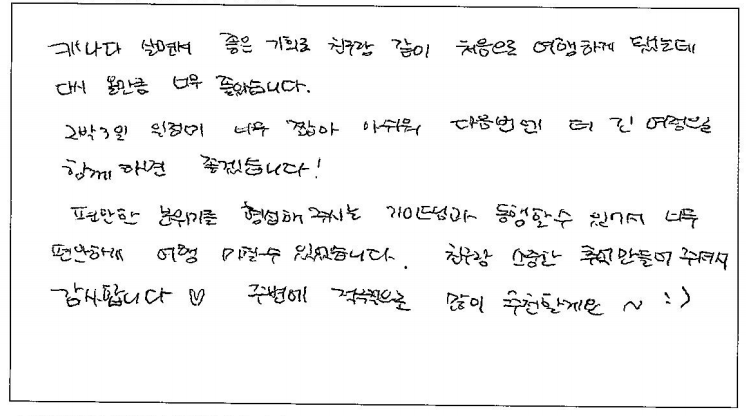 캐나다 살면서 좋은 기회로 친구랑 같이 처음으로 여행하게 됐는데
다시 올만큼 너무 좋았습니다.
2박3일 일정이 너무 짧아 아쉬워 다음번엔 더 긴 여정을
함께 하면 좋겠습니다!
편안한 분위기를 형성해 주시는 가이드님과 동행할 수 있어서 너무
편안하게 여행 마칠 수 있었습니다. 친구랑 소중한 추억 만들어 주셔서
감사합니다 ♡ 주변에 적극적으로 많이 추천할게요 ~ :)